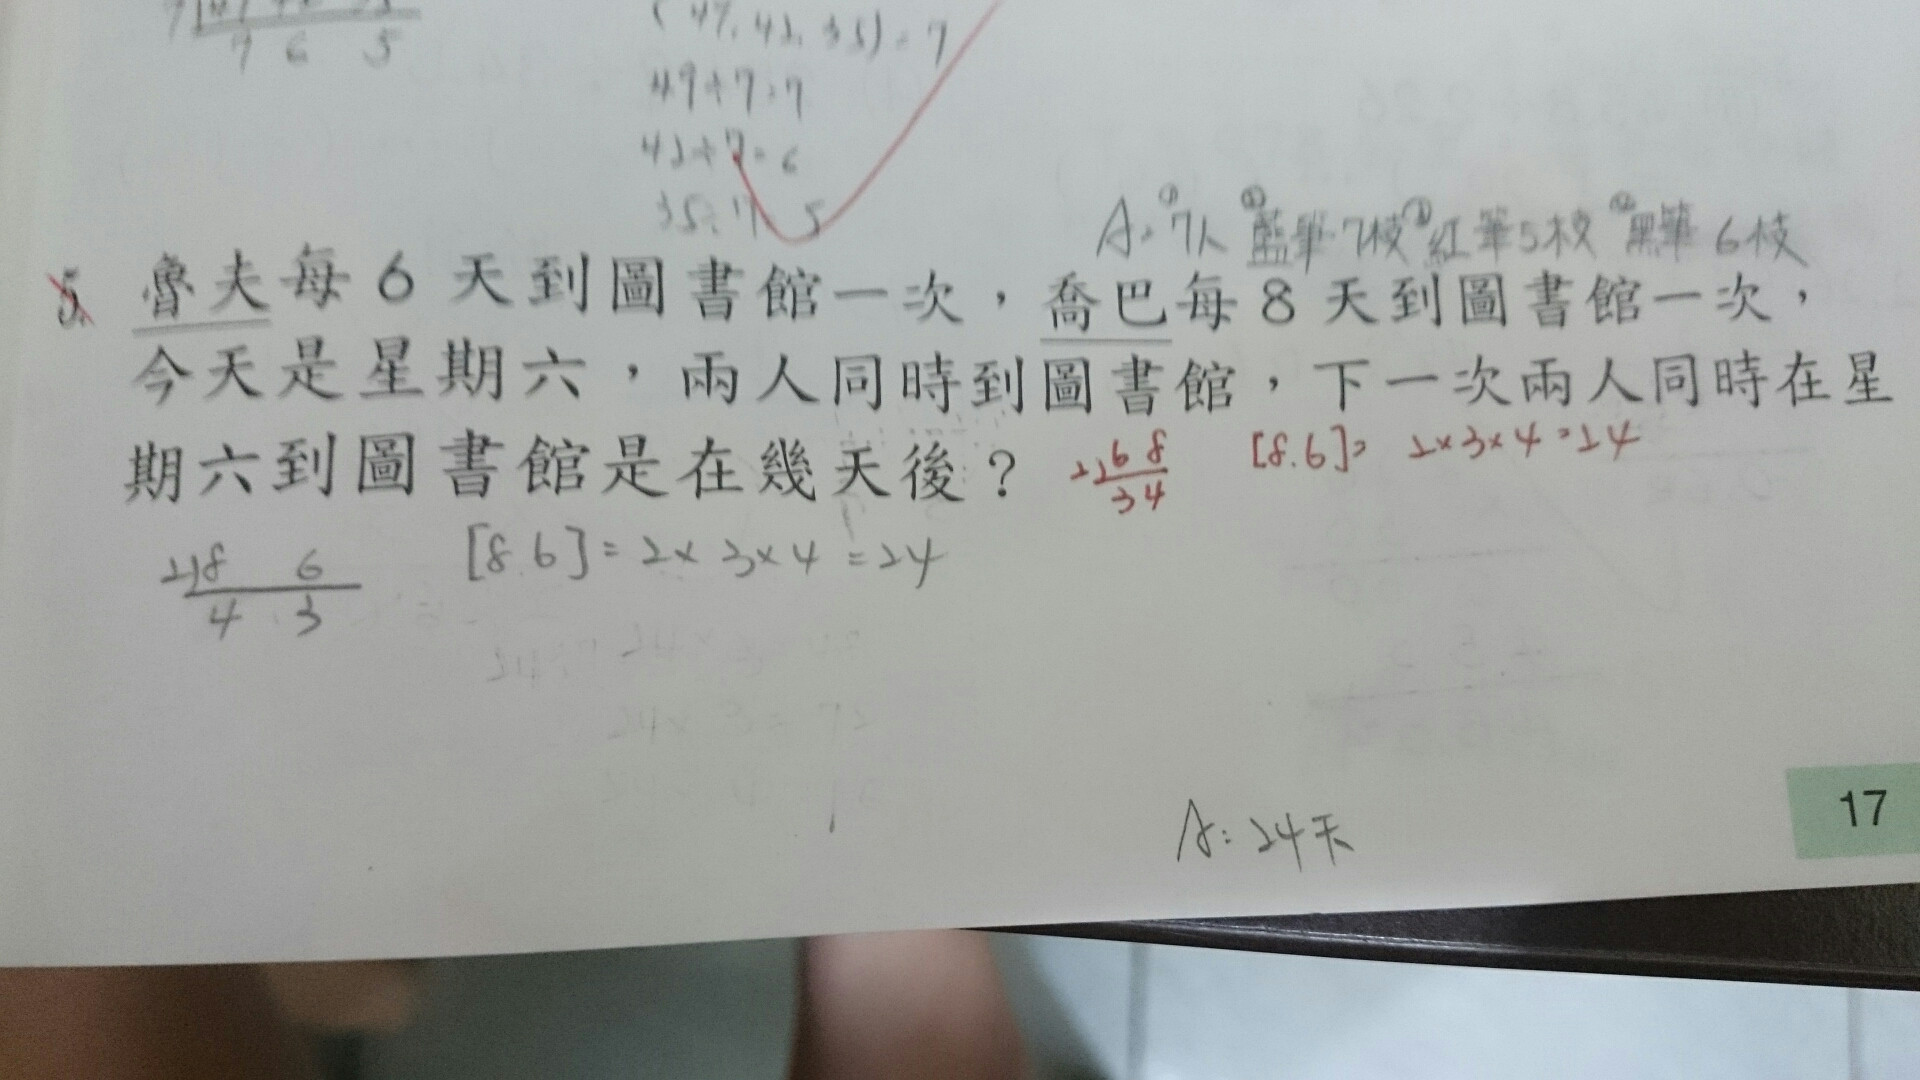 7 6 5
(49, 42, 35) = 7
49÷7=7
42÷7=6
35÷7=5
A: ①7人 ②藍筆7枝 ③紅筆5枝 ④黑筆6枝
5. 魯夫每6天到圖書館一次，喬巴每8天到圖書館一次，
今天是星期六，兩人同時到圖書館，下一次兩人同時在星
期六到圖書館是在幾天後？
2)6 8
3 4
[8.6]= 2×3×4=24
2)8 6
4 3
[8.6]=2×3×4=24
24×3=72
A: 24天
17